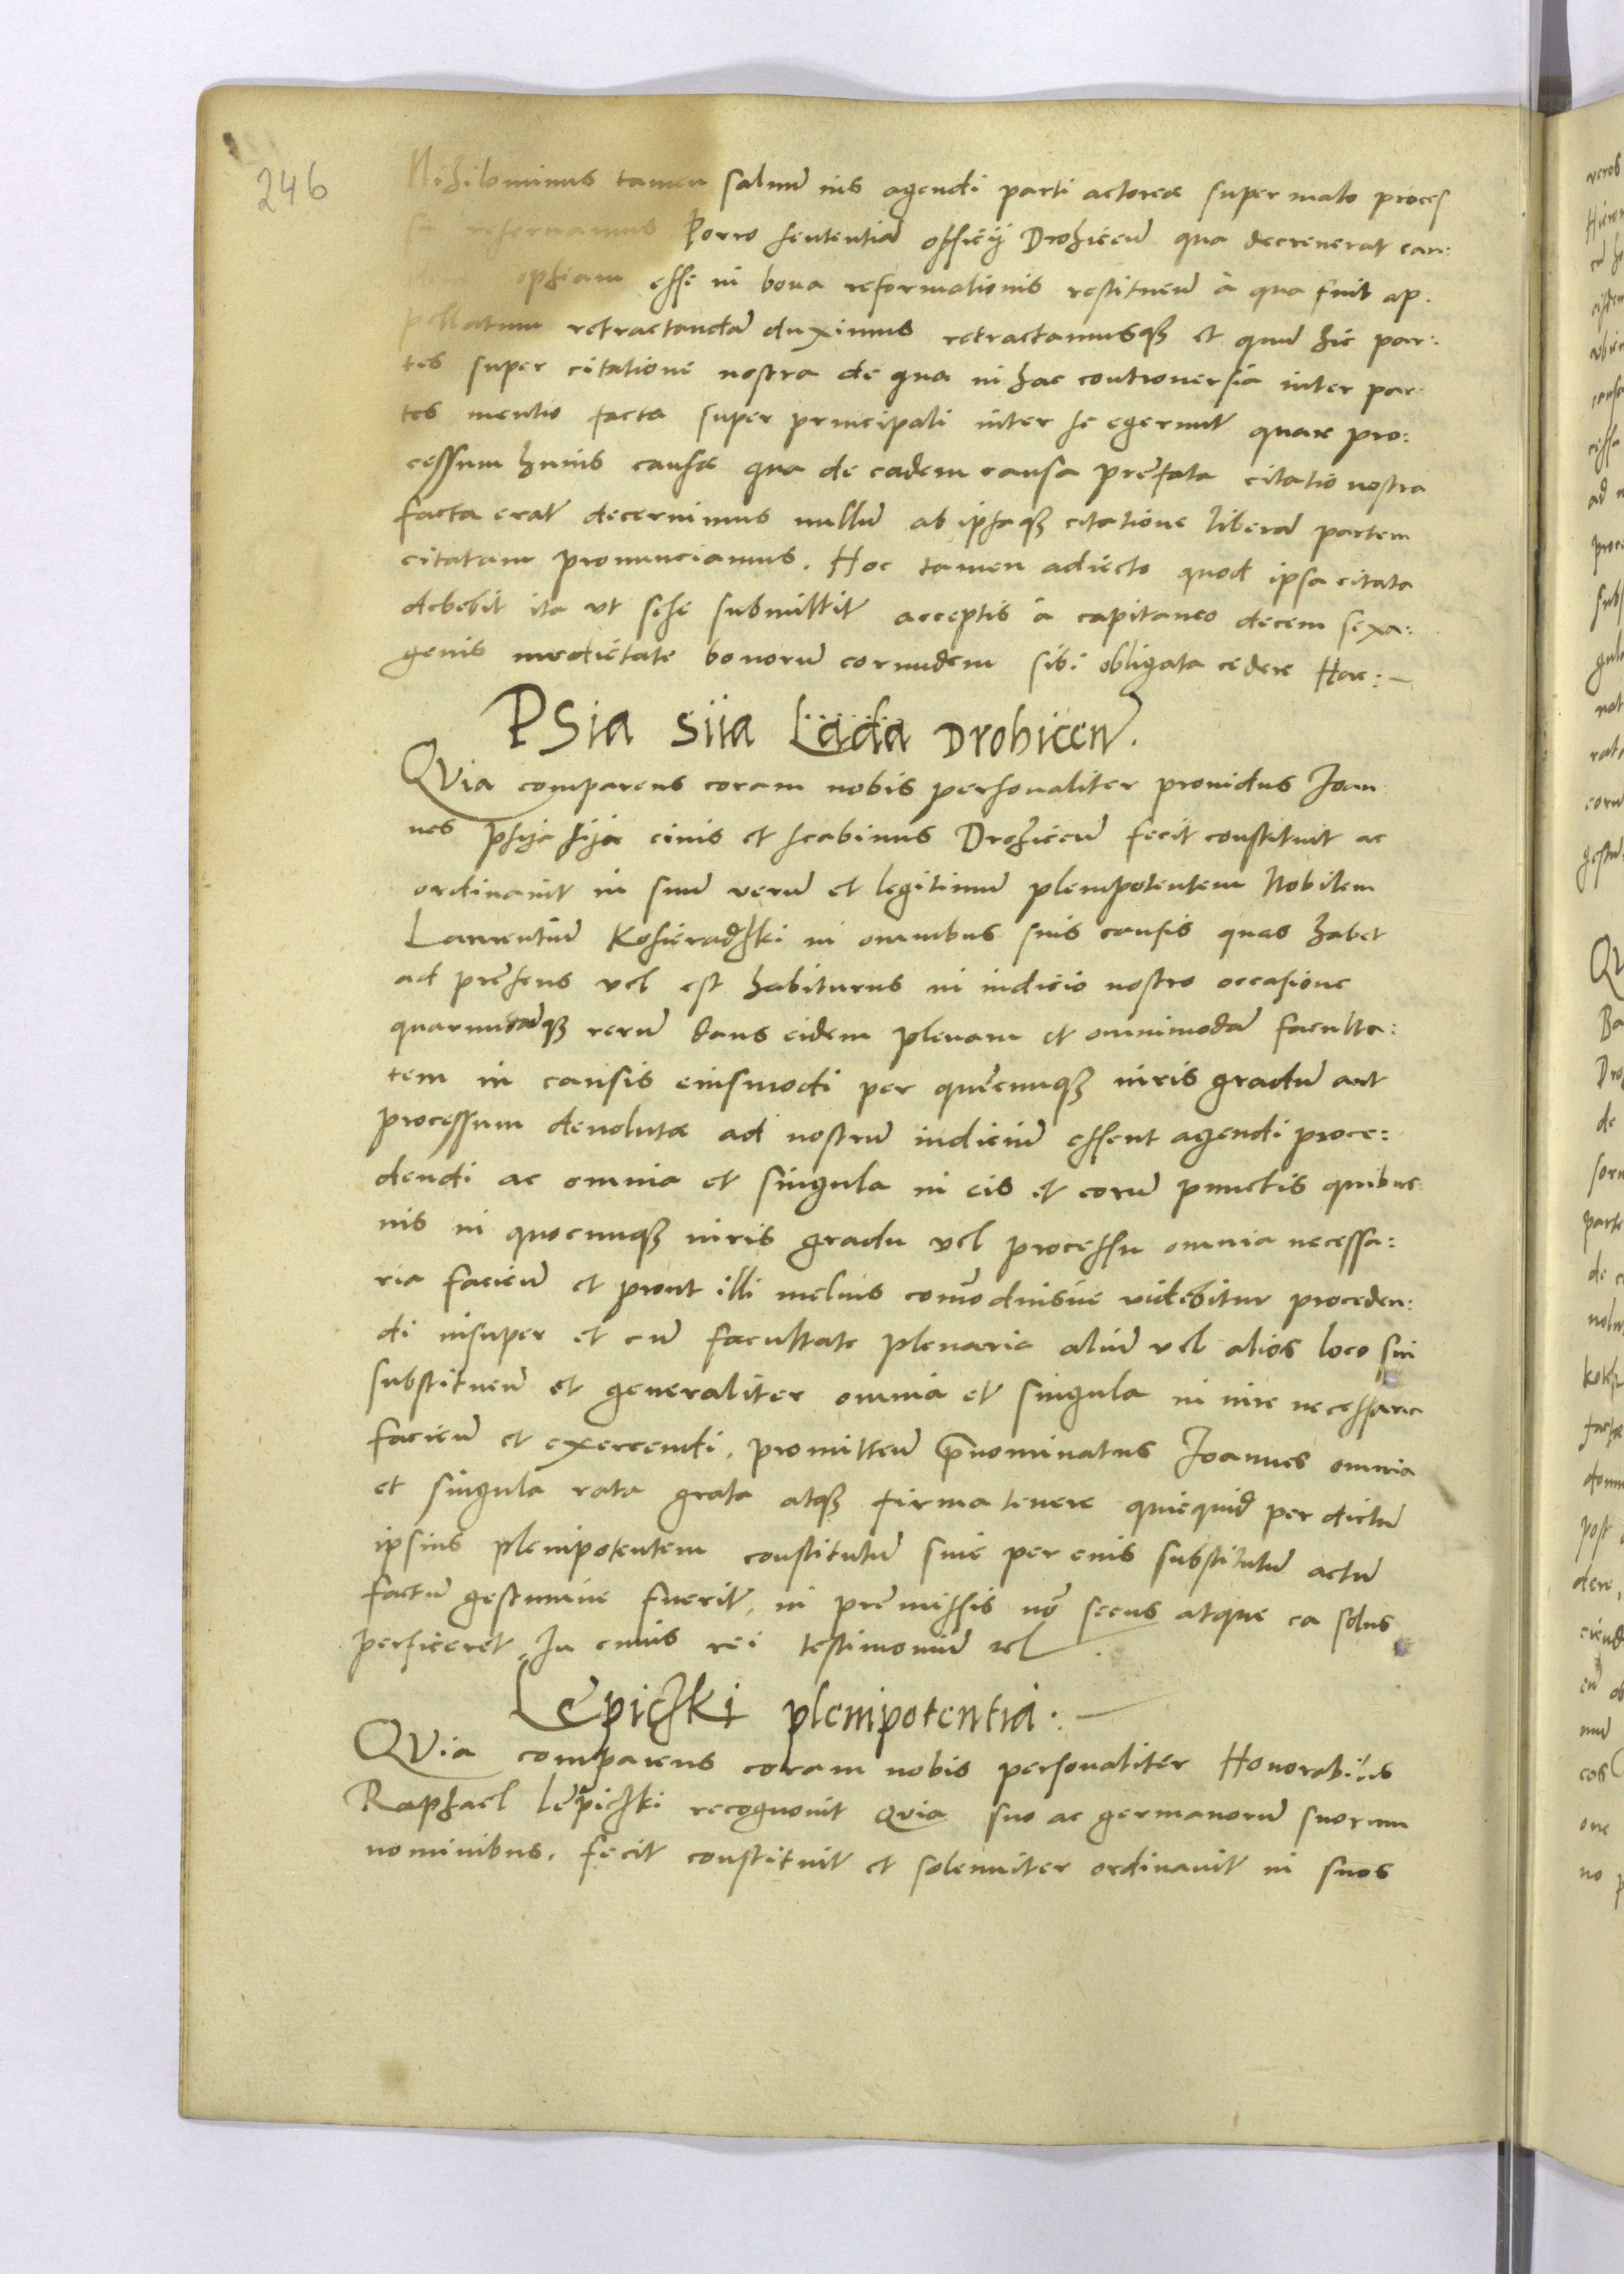 246
Nihilominus tamen salvum ius agendi parti actoreæ super malo proces
su reservamus Porro sententiã officij Drohiceñ qua decreverat ean:
dem opsiam esse in bona reformationis restitueñ à qua fuit ap.
pellatum retractandã duximus retractamusqȝ et quum hic par:
tes super citatione nostra de qua in hac controversia inter par
tes mentio facta super principali inter se egerunt quare pro:
cessum huius causæ qua de eadem causa prefata citatio nostra
facta erat decernimus nullũ ab ipsaqȝ citatione liberã partem
citatam pronunciamus. Hoc tamen adiecto quod ipsa citata
debebit ita ut sese submittit acceptis à capitaneo decem sexa:
genis medietate bonorũ eorundem sibi obligata cedere Hoc:—
PSia siia Lada Drohiceñ.
Quia comparens coram nobis personaliter providus Ioan
nes psija sija civis et scabinus Drohiceñ fecit constituit ac
ordinavit in suũ verũ et legitimũ plenipotentem Nobilem
Laurentiũ Kosieradzki in omnibus suis causis quas habet
ad presens vel est habiturus in iudicio nostro occasione
quarumcũqȝ rerũ dans eidem plenam et omnimodã faculta:
tem in causis eiusmodi per quẽcunqȝ iuris gradũ aut
processum devolutæ ad nostrũ iudiciũ essent agendi proce:
dendi ac omnia et singula in eis et eorũ punctis quibus:
vis in quocunqȝ iuris gradu vel processu omnia necessa:
ria facieñ et prout illi melius comõdiusve videbitur proceden:
di insuper et cũ facultate plenaria aliũ vel alios loco sui
substitueñ et generaliter omnia et singula in iure necessaria
facieñ et exercendi. promitteñ p̃nominatus Ioannes omnia
et singula rata grata atqȝ firma tenere quicquid per dictũ
ipsius plenipotentem constitutũ sive per eius substitutũ actũ
factũ gestumve fuerit, in premissis nõ secus atque ea solus
perficeret In cuius rei testimoniũ etc.
Lepiczki plenipotentia.—
Quia comparens coram nobis personaliter Honorabilis
Raphael Lepiczki recognovit quia suo ac germanorũ suorum
nominibus. fecit constituit et solenniter ordinavit in suos